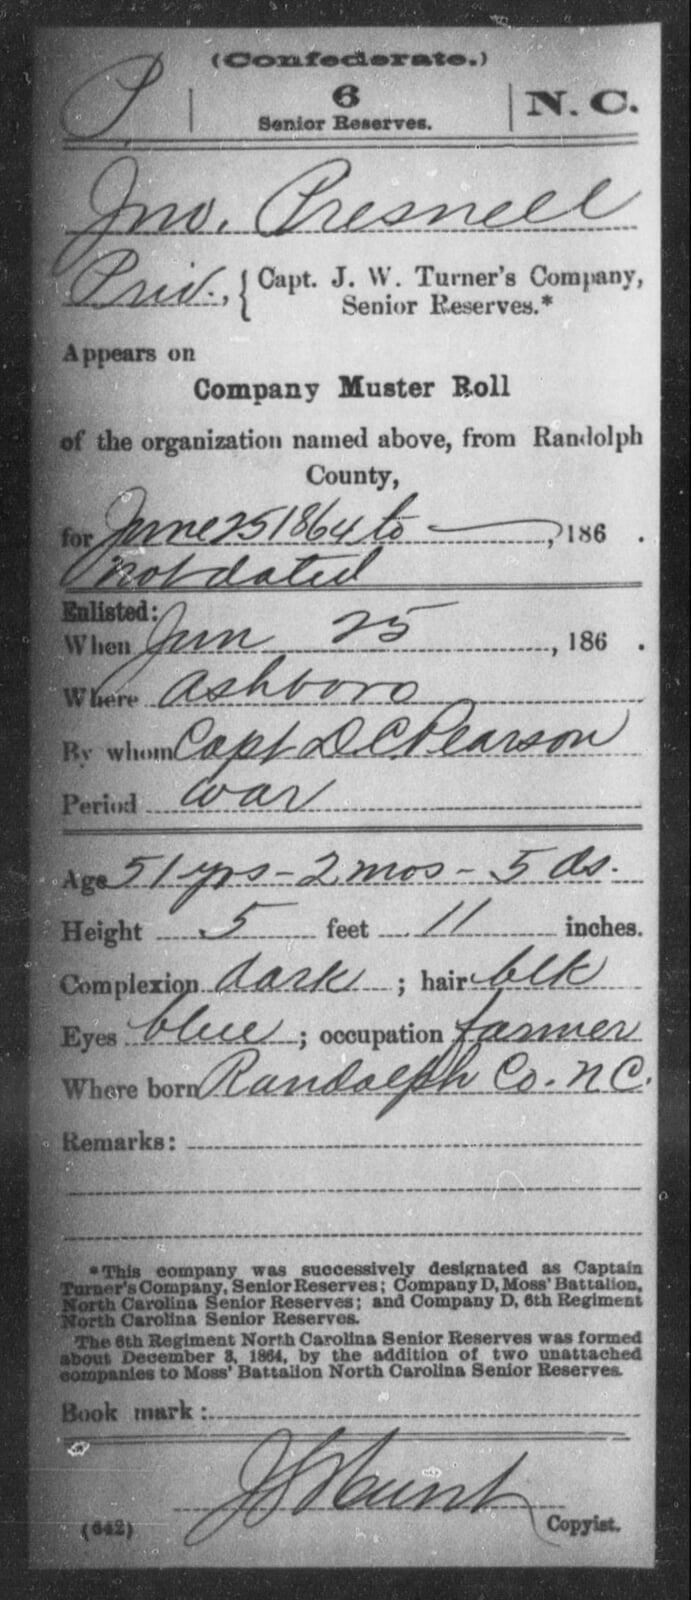 (Confederate.)
P | 6 | N. C.
Senior Reserves.
Jno. Presnell
Priv., { Capt. J. W. Turner's Company,
Senior Reserves.*
Appears on
Company Muster Roll
of the organization named above, from Randolph
County,
for June 25 1864 to —, 186 .
not dated
Enlisted:
When Jun 25, 186 .
Where Ashboro
By whom Capt D. C. Pearson
Period war
Age 51 yrs - 2 mos - 5 ds.
Height 5 feet 11 inches.
Complexion dark; hair blk
Eyes blue; occupation farmer
Where born Randolph Co. N C.
Remarks:
*This company was successively designated as Captain
Turner's Company, Senior Reserves; Company D, Moss' Battalion,
North Carolina Senior Reserves; and Company D, 6th Regiment
North Carolina Senior Reserves.
The 6th Regiment North Carolina Senior Reserves was formed
about December 3, 1864, by the addition of two unattached
companies to Moss' Battalion North Carolina Senior Reserves.
Book mark:
(642) Copyist.